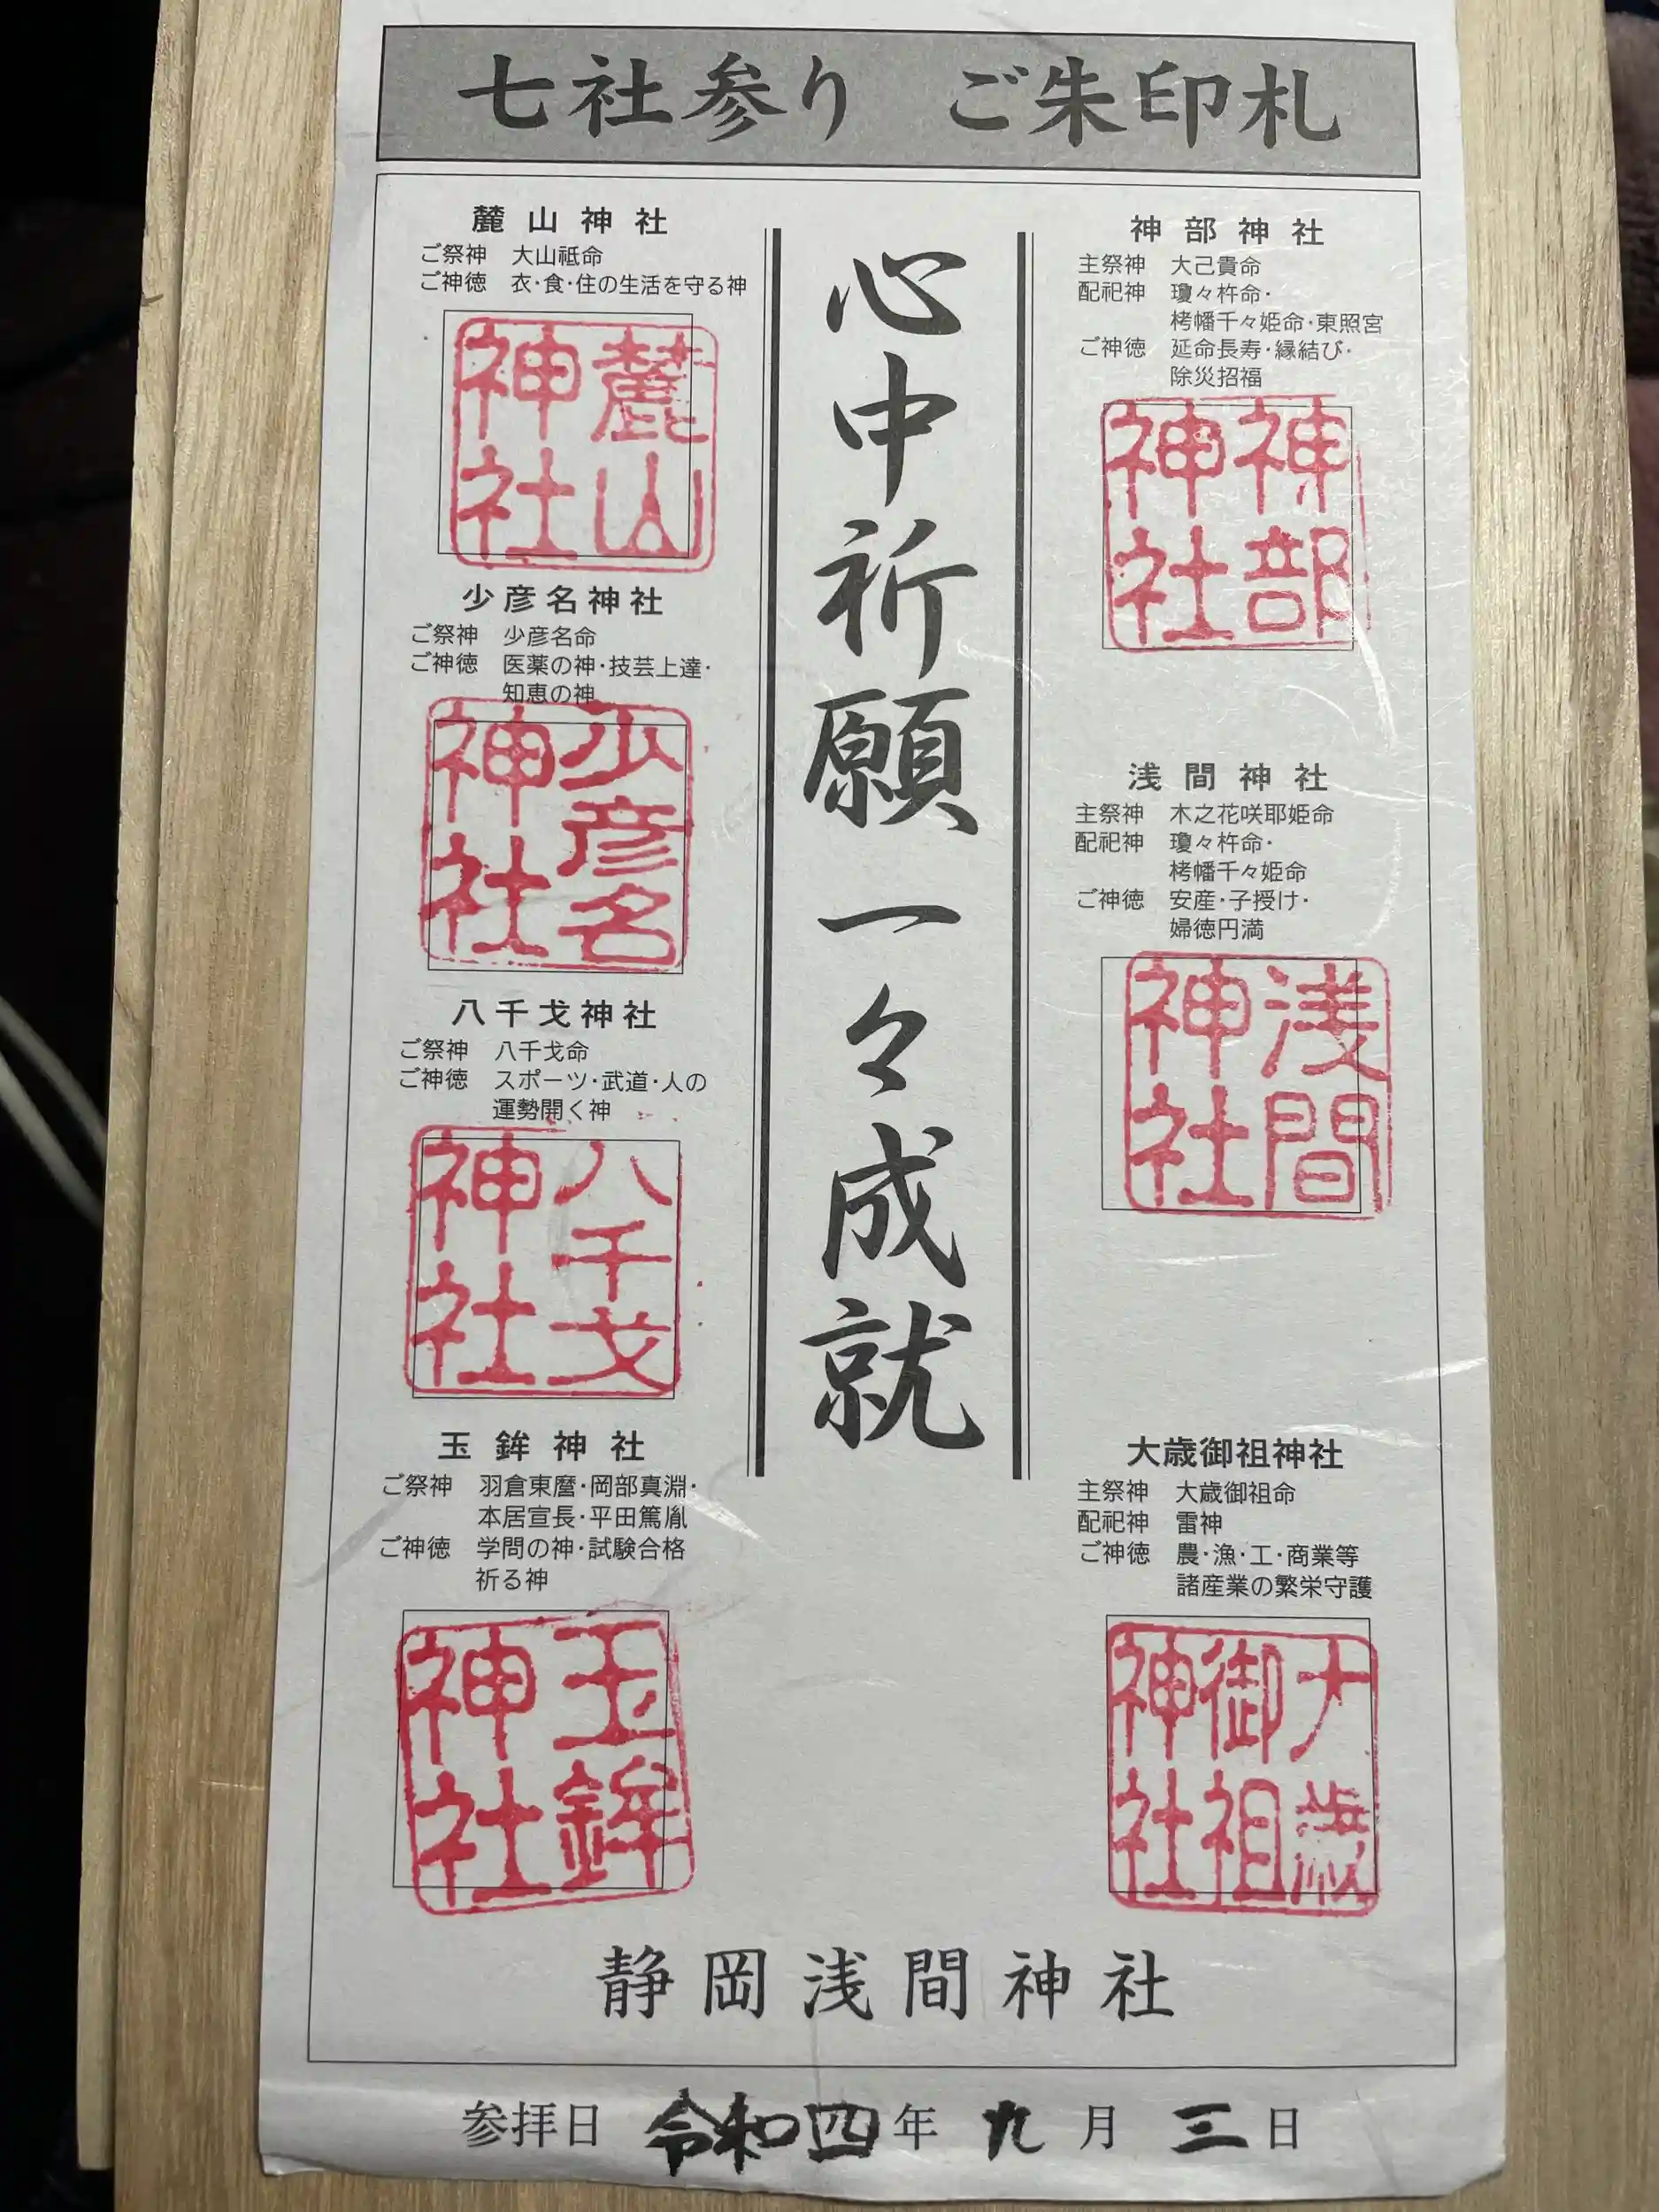 七社参り ご朱印札
神部神社
主祭神 大己貴命
配祀神 瓊々杵命・
栲幡千々姫命・東照宮
ご神徳 延命長寿・縁結び・
除災招福
神部
神社
浅間神社
主祭神 木之花咲耶姫命
配祀神 瓊々杵命・
栲幡千々姫命
ご神徳 安産・子授け・
婦徳円満
浅間
神社
大歳御祖神社
主祭神 大歳御祖命
配祀神 雷神
ご神徳 農・漁・工・商業等
諸産業の繁栄守護
大歳
御祖
神社
心中祈願一々成就
麓山神社
ご祭神 大山祇命
ご神徳 衣・食・住の生活を守る神
麓山
神社
少彦名神社
ご祭神 少彦名命
ご神徳 医薬の神・技芸上達・
知恵の神
少彦名
神社
八千戈神社
ご祭神 八千戈命
ご神徳 スポーツ・武道・人の
運勢開く神
八千戈
神社
玉鉾神社
ご祭神 羽倉東麿・岡部真淵・
本居宣長・平田篤胤
ご神徳 学問の神・試験合格
祈る神
玉鉾
神社
静岡浅間神社
参拝日 令和四年 九月 三日